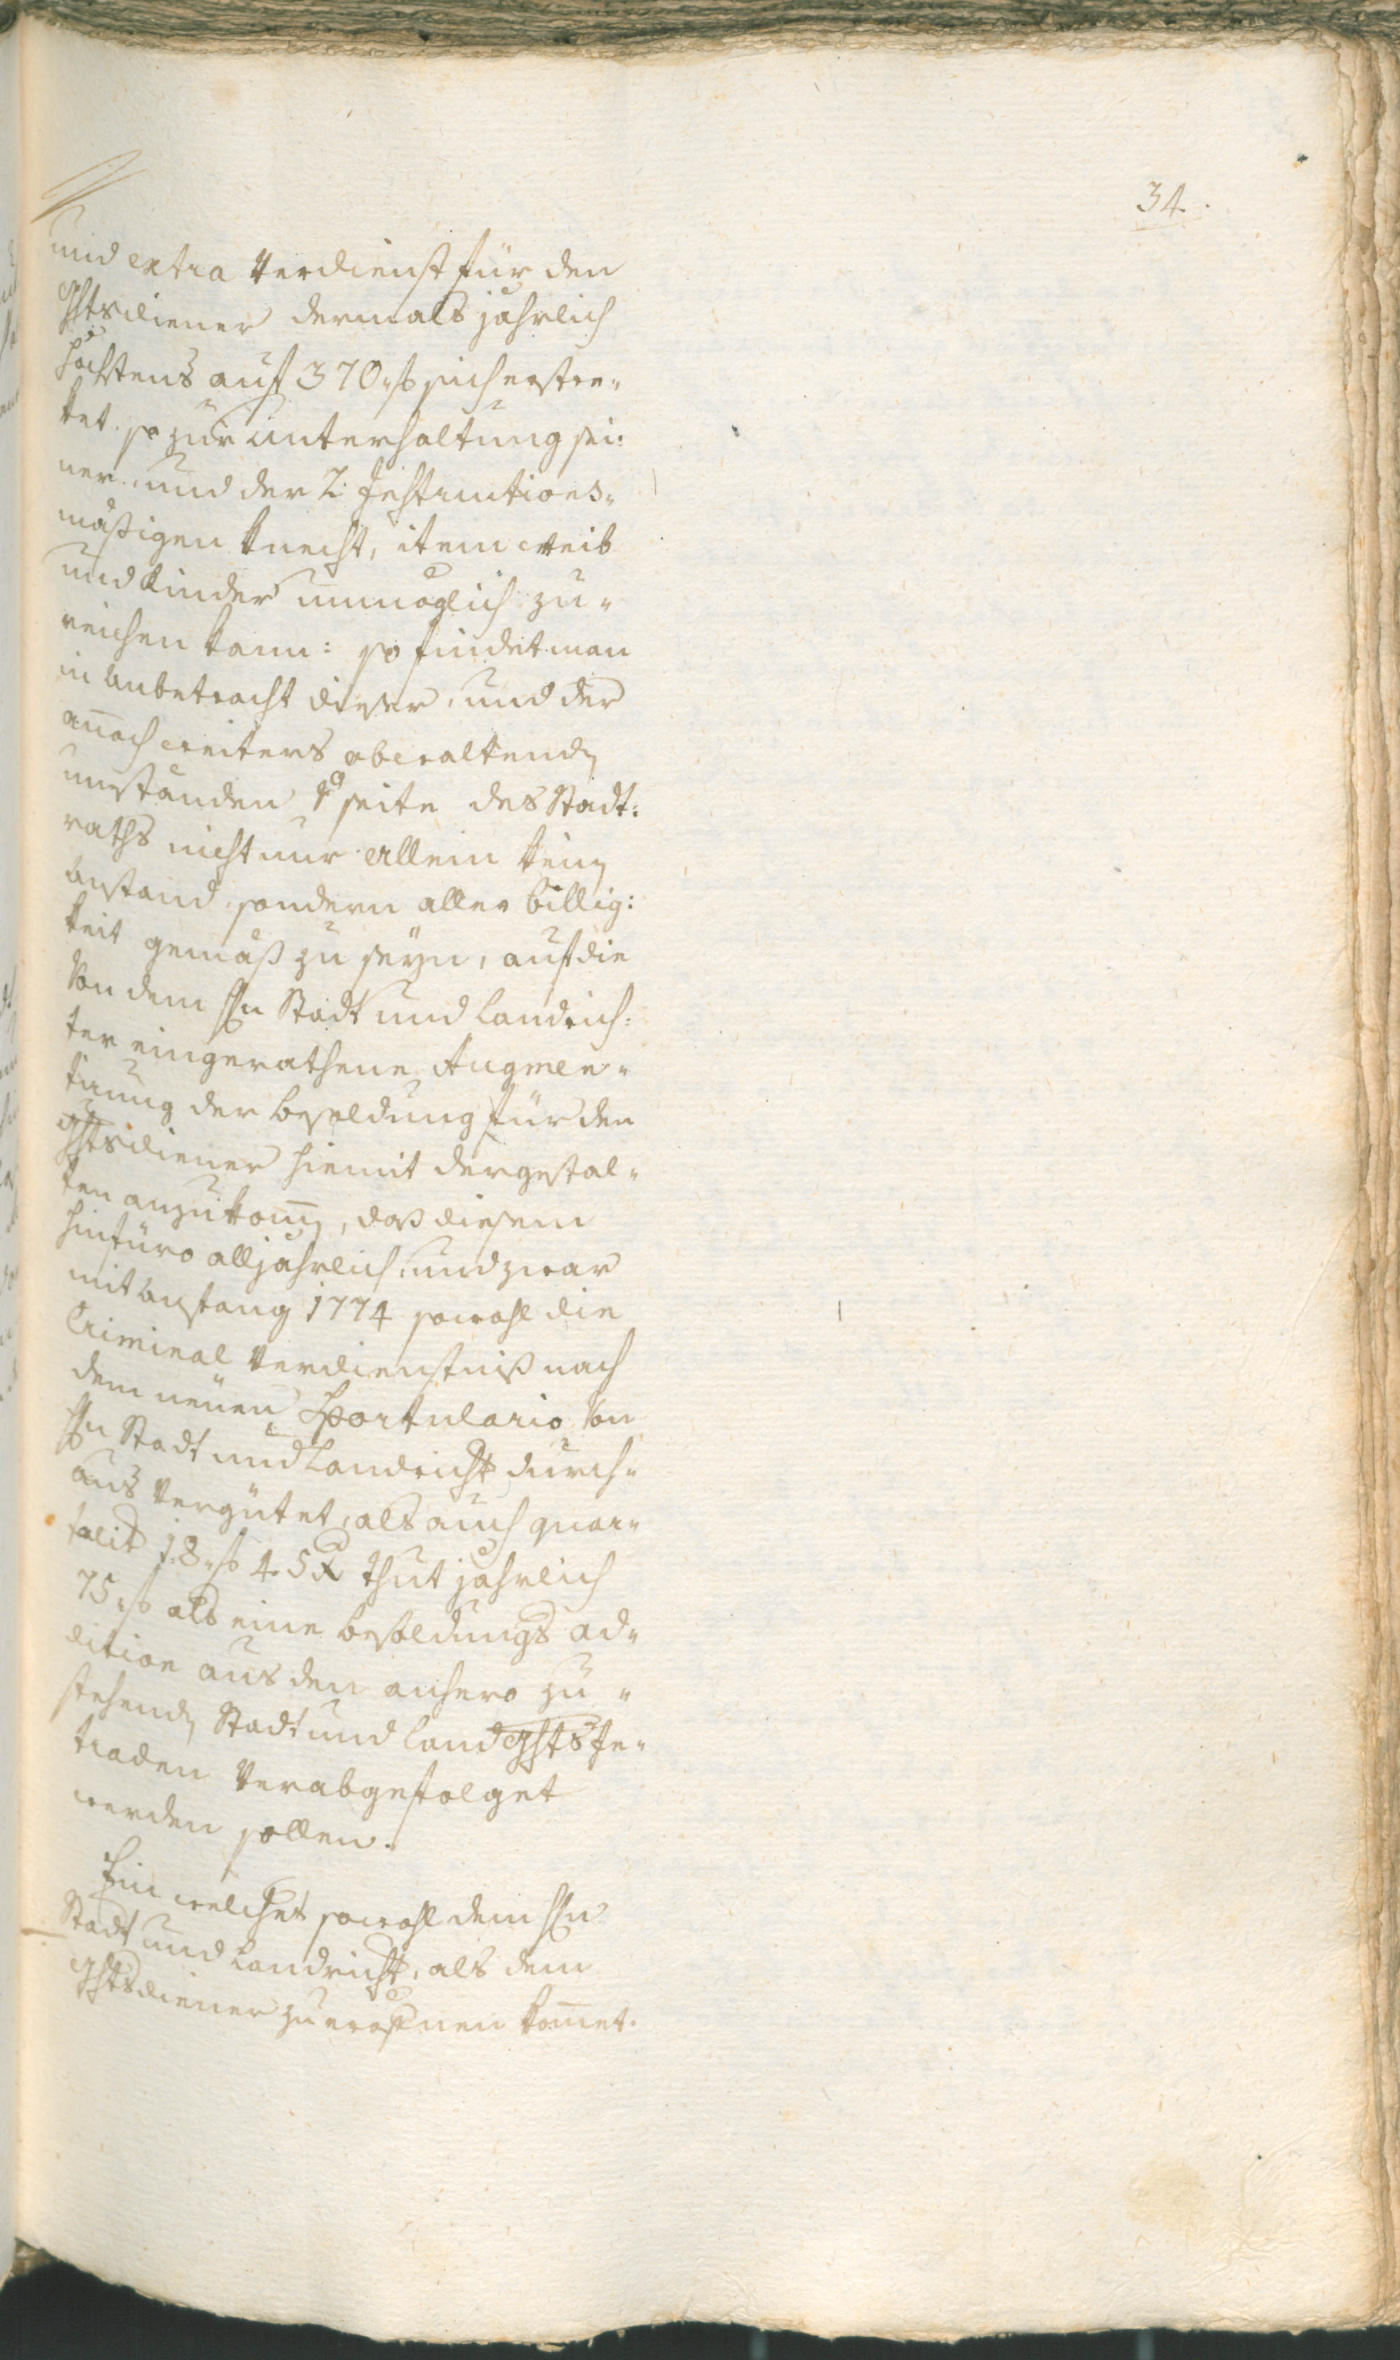 34.
und extra Verdienst für den
Ghtsdiener dermals jährlich
höchstens auf 370 f sich erstre„
ket. so zur Unterhaltung sei:
ner, und der 2. Instructions„
mäßigen Knecht, item Weib
und Kinder unmöglich zu„
reichen kann: so findet man
in Anbetracht dieser, und der
annoch weiters obwaltenden
umständen seite des Stadt:
raths nicht nur allein keinen
Anstand, sondern aller billig:
keit gemäß zu seyn, auf die
Von dem Hn Stadt und Landrich:
ter eingerathene Augmen„
tirung der Besoldung für den
Ghtsdiener hiemit dergestal„
ten anzukommen, daß diesem
hinfüro alljährlich, und zwar
mit Anfang 1774 sowohl die
Criminal Verdienstniß nach
dem neuen Sportulario Von
Hn Stadt und Landricht durch„
aus Vergütet, als auch quar„
talit 18 f 45 x thut jährlich
75 f als eine besoldungs ad„
dition aus den anhero zu„
stehenden Stadt und Land Ghts In„
traden Verabgefolget
werden sollen.
Ein welches sowohl dem Hn
Stadt und Landricht, als dem
Ghtsdiener zu eröfnen kommet.